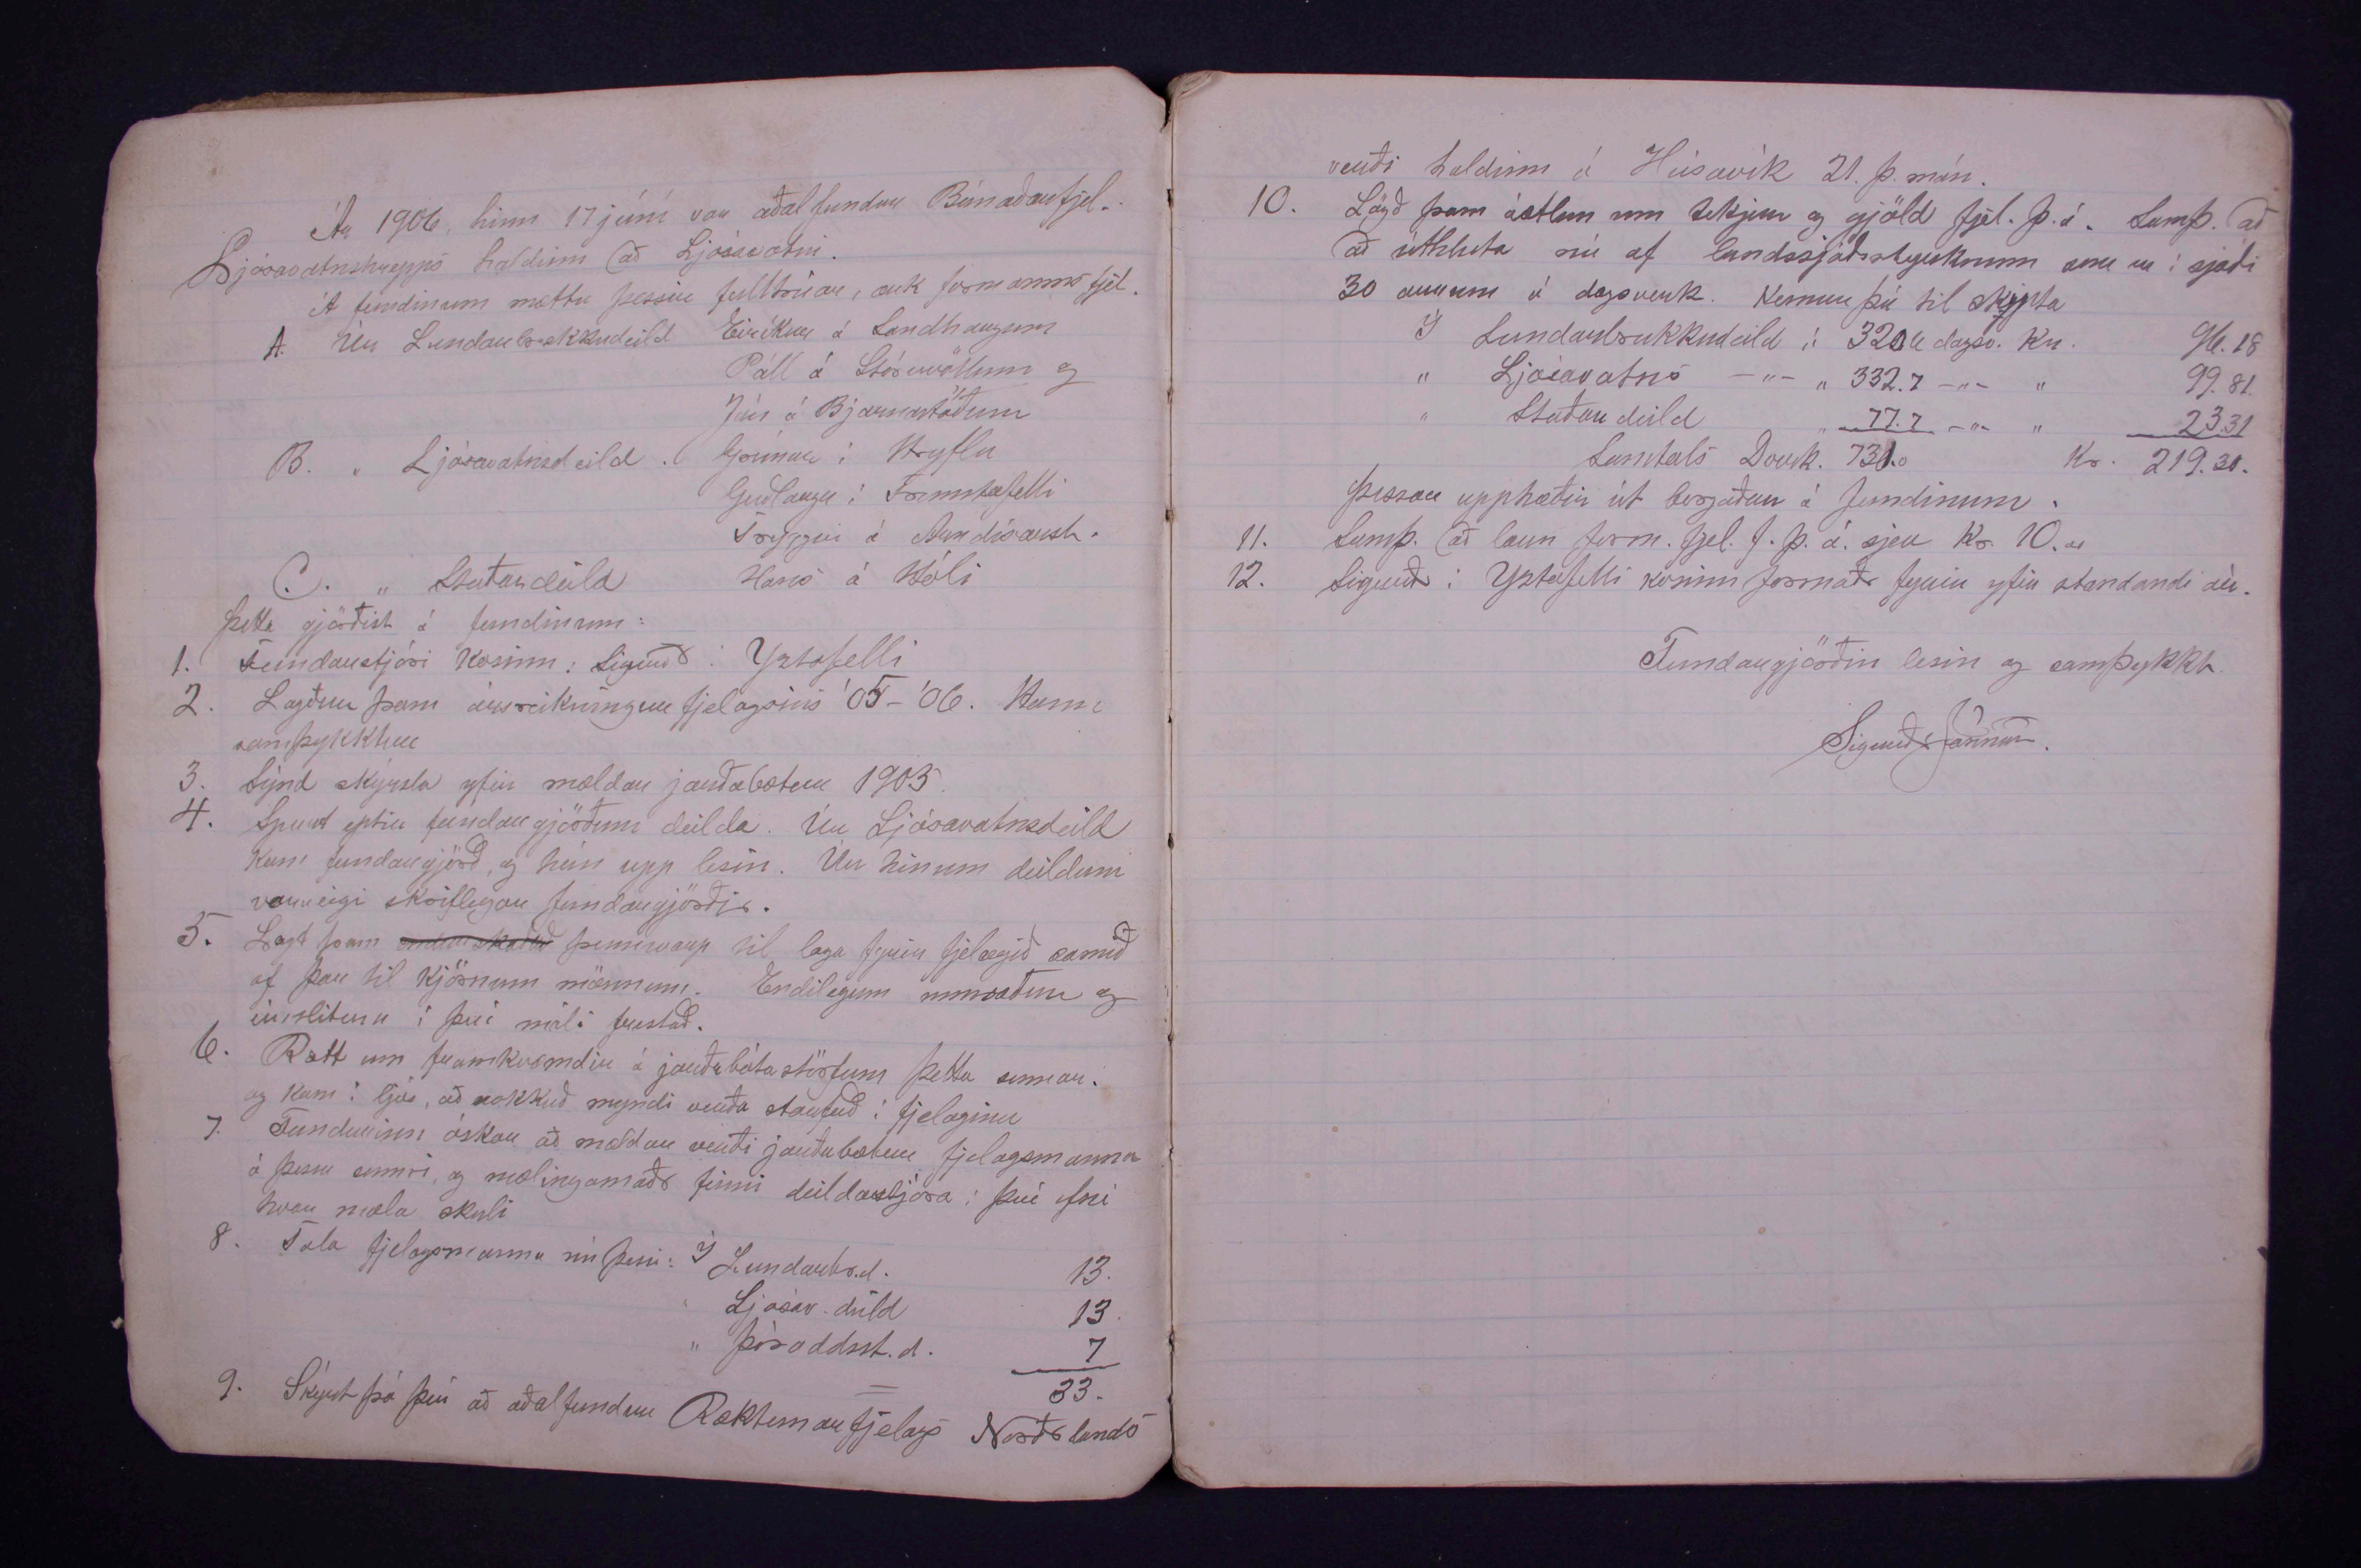 Ár 1906, hinn 17 júní var aðalfundur Búnaðarfjel.
Ljósavatnshrepps haldinn að Ljósavatni.
Á fundinum mættu þessir fulltrúar, auk formanns fjel.
A. Úr Lundarbrekkudeild Eiríkur á Sandhaugum
Páll á Stóruvöllum og
Jón á Bjarnastöðum
B. " Ljósavatnsdeild. Grímur í Hriflu
Guðlaugur í Fremstafelli
Tryggvi á Arndísarst.
C. " Staðardeild Hans á Hóli
Þetta gjörðist á fundinum:
1. Fundarstjóri kosinn: Sigurðr í Yztafelli
2. Lagður fram ársreikningur fjelagsins '05-'06. Hann
samþykktur
3. Sýnd skýrsla yfir mældar jarðabætur 1905.
4. Spurt eptir fundargjörðum deilda. Úr Ljósavatnsdeild
kom fundargjörð, og hún upp lesin. Úr hinum deildum
varu eigi skriflegar fundargjörðir.
5. Lagt fram frumvarp til laga fyrir fjelagið samið
af þar til kjörnum mönnum. Endilegum umræðum og
úrslitum í því máli frestað.
6. Rætt um framkvæmdir á jarðabótastörfum þetta sumar.
og kom í ljós, að nokkuð myndi verða starfað í fjelaginu
7. Fundurinn óskar að mældar verði jarðabætur fjelagsmanna
á þessu sumri, og mælingamaðr finni deildarstjóra í því efni
hvar mæla skuli
8. Tala fjelagsmanna nú þessi: Í Lundarbr.d. 13.
" Ljósav. deild 13.
" Þóroddsst.d. 7
33.
9. Skýrt frá því að aðalfundur Ræktunarfjelags Norðrlands
verði haldinn á Húsavík 21. þ. mán.
10. Lögð fram áætlun um tekjur og gjöld fjel. þ.á. Samþ. að
að úthluta nú af landssjóðsstyrknum sem er í sjóði
30 aurum á dagsverk. Kemur þá til skipta
Í Lundarbrekkudeild í 320.6 dagsv. Kr. 96.18
" Ljósavatns -"- " 332.7 -"- " 99.81.
" Staðar deild " 77.7 -"- " 23.31
Samtals Dsverk. 731.0 Kr. 219.30.
Þessar upphæðir út borgaðar á fundinum.
11. Samþ. að laun form. fjel. f. þ. á. sjeu Kr. 10.00
12. Sigurðr í Yztafelli kosinn formaðr fyrir yfir standandi ár.
Fundargjörðin lesin og samþykkt.
Sigurðr Jónsson.